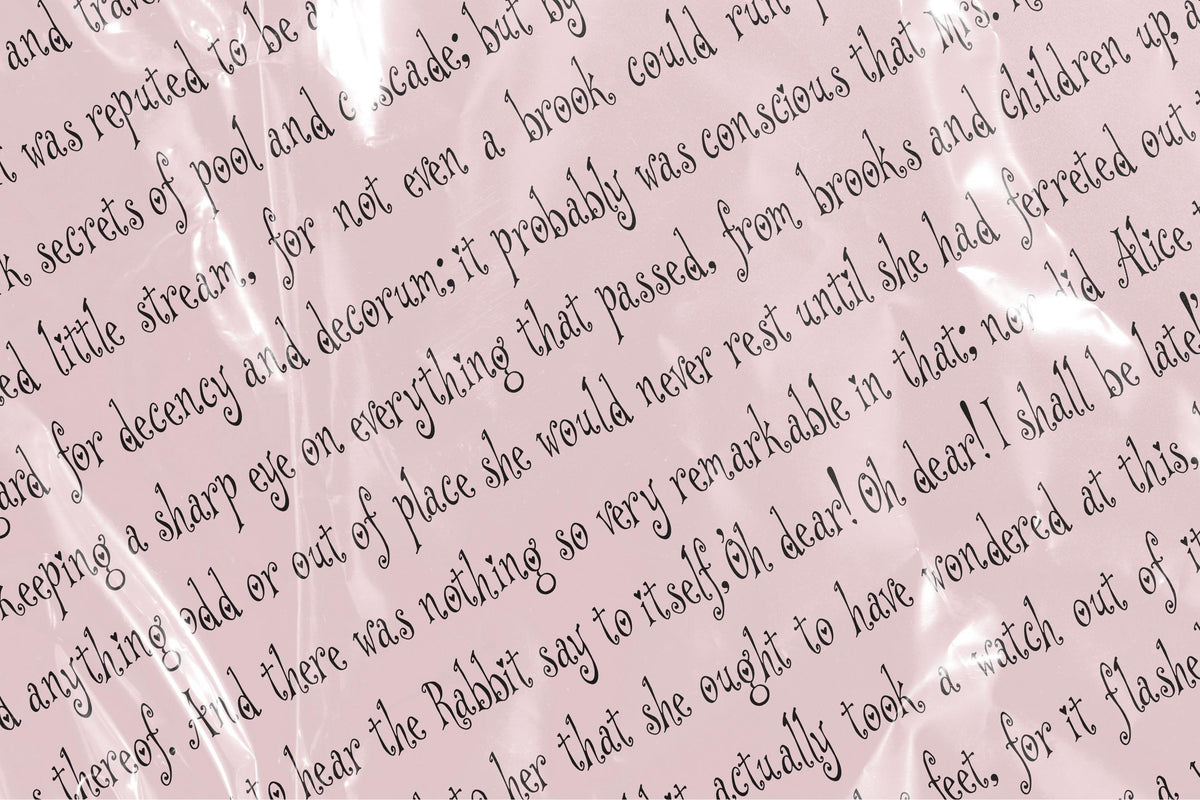 and
was reputed to be a
secrets of pool and cascade; but by
little stream, for not even a brook could run
for decency and decorum; it probably was conscious that Mrs.
keeping a sharp eye on everything that passed, from brooks and children up,
anything odd or out of place she would never rest until she had ferreted out
thereof. And there was nothing so very remarkable in that; nor did Alice
to hear the Rabbit say to itself, 'Oh dear! Oh dear! I shall be late!'
to her that she ought to have wondered at this,
actually took a watch out of
feet, for it